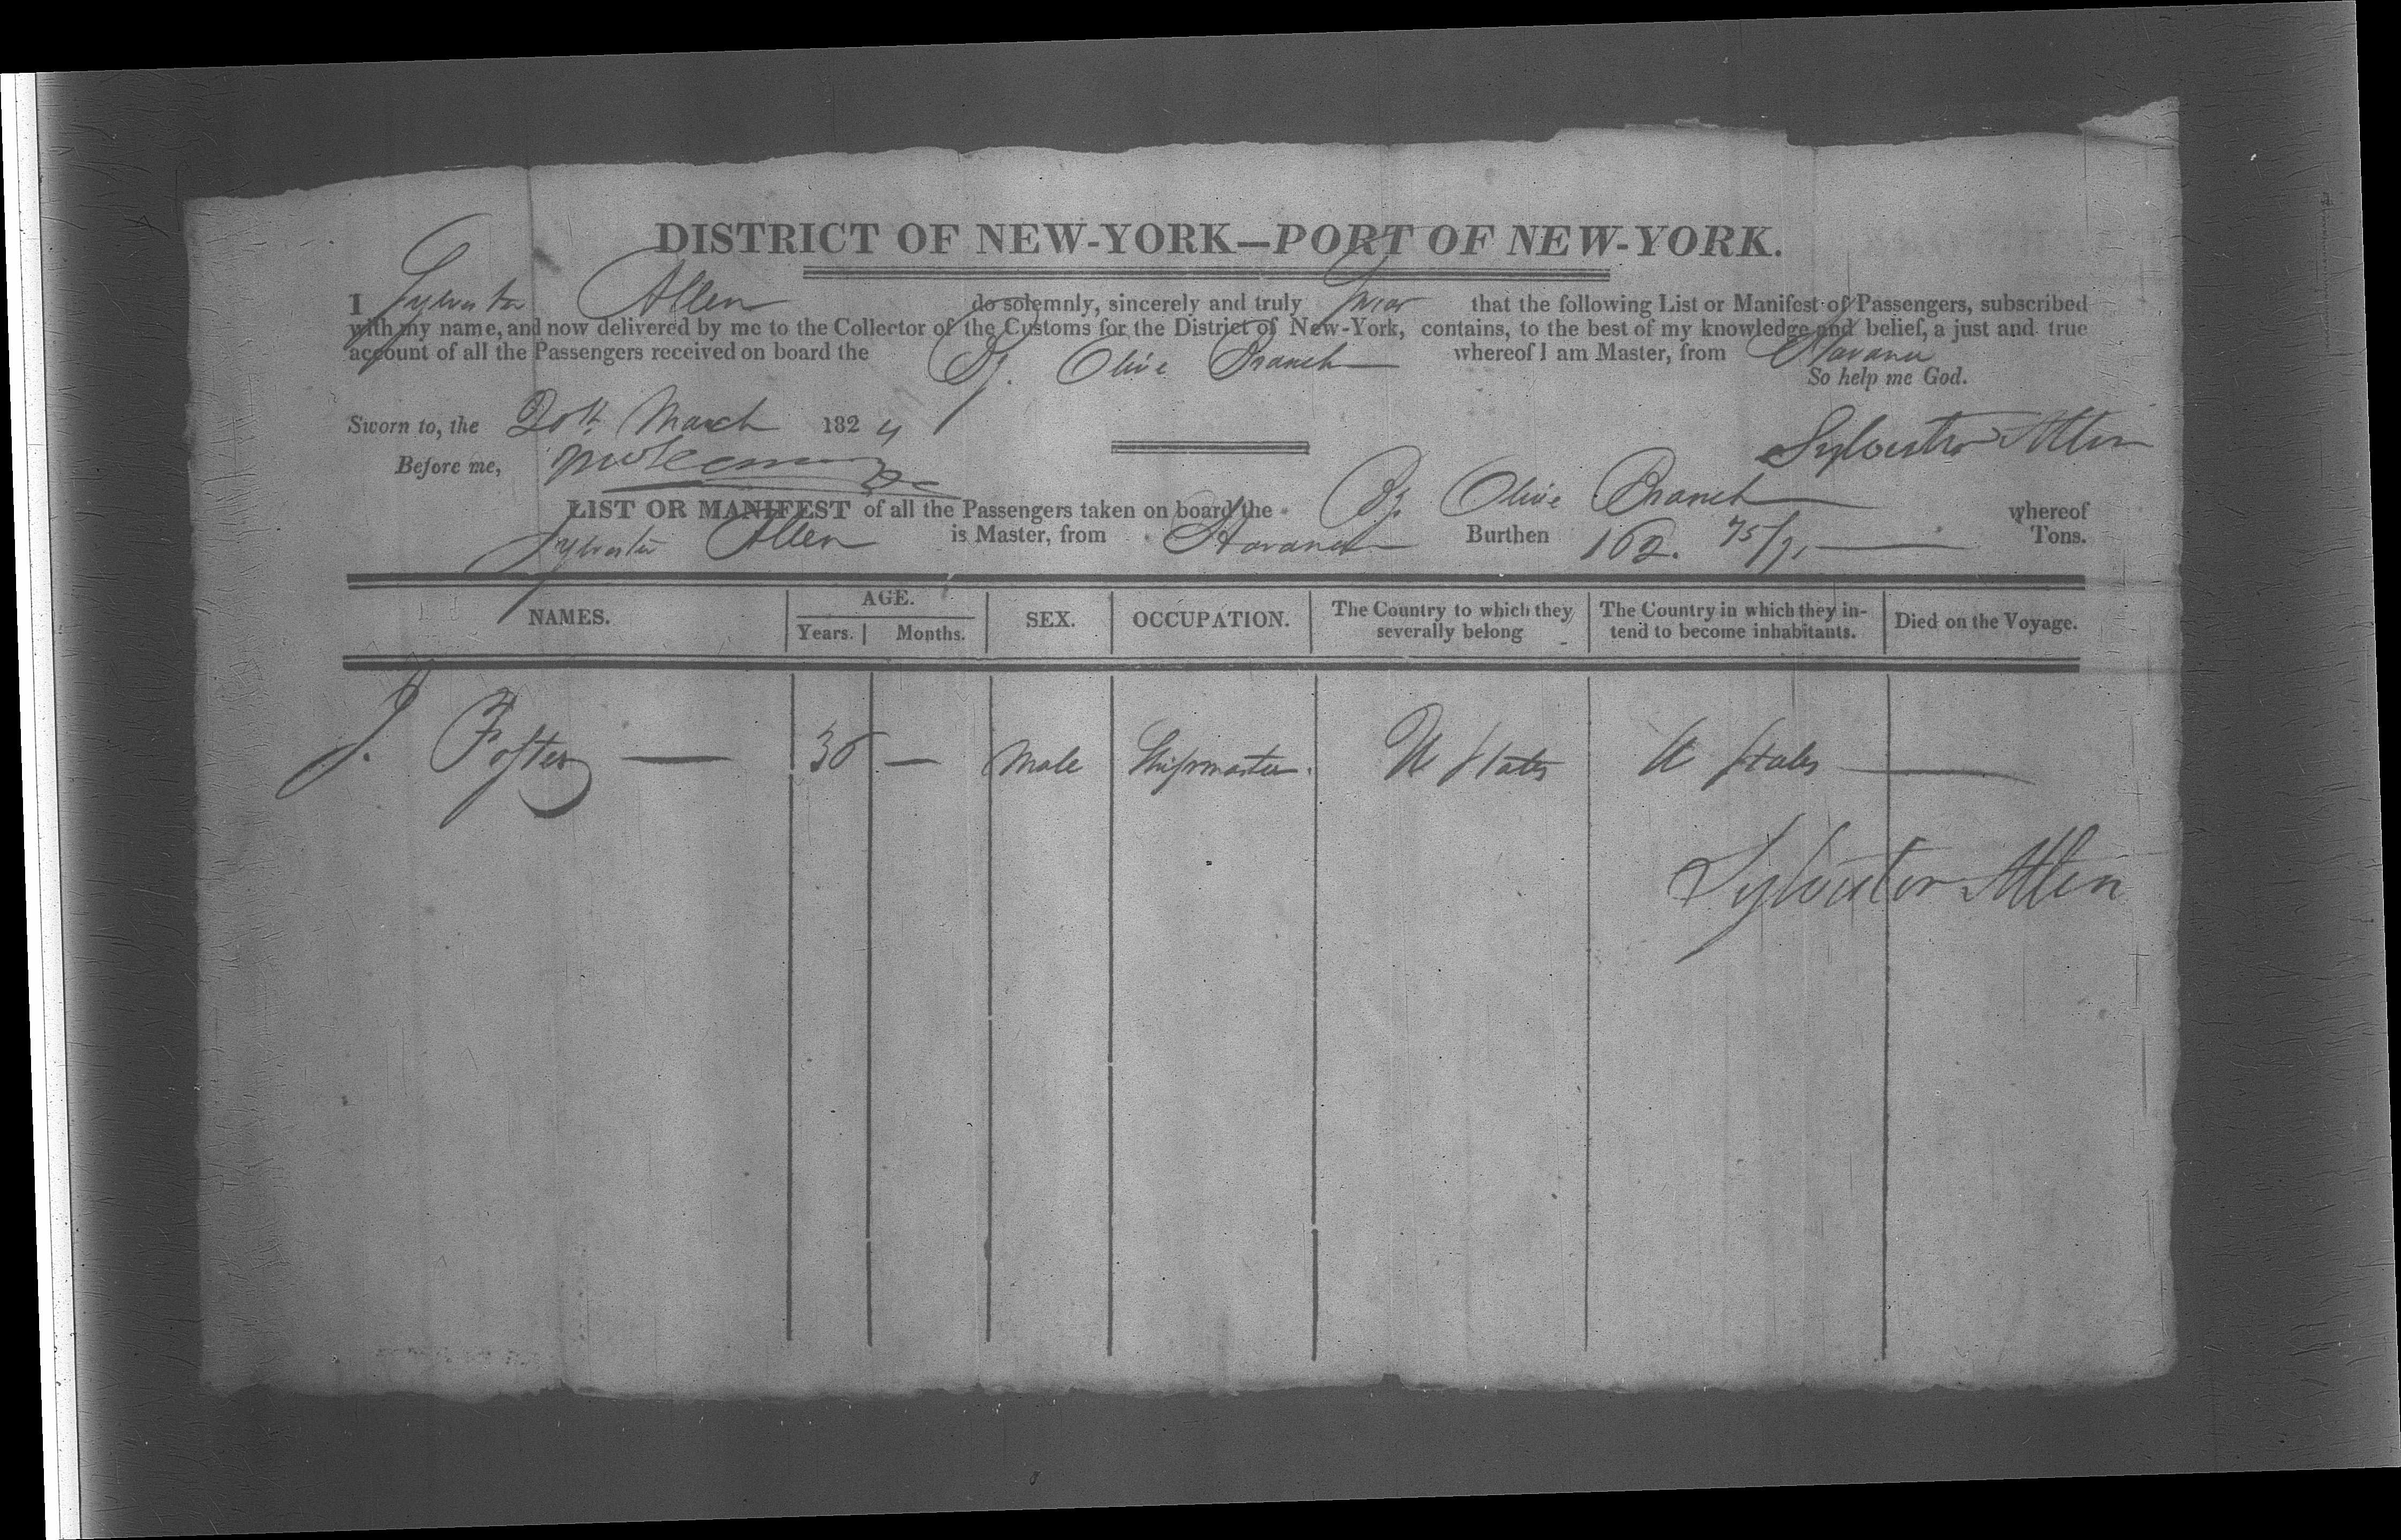 DISTRICT OF NEW-YORK—PORT OF NEW-YORK.
I Sylvester Allen do solemnly, sincerely and truly swear that the following List or Manifest of Passengers, subscribed
with my name, and now delivered by me to the Collector of the Customs for the District of New-York, contains, to the best of my knowledge and belief, a just and true
account of all the Passengers received on board the Bg. Olive Branch whereof I am Master, from Havana
So help me God.
Sworn to, the 20th March 1824
Sylvester Allen
Before me,
LIST OR MANIFEST of all the Passengers taken on board the Bg. Olive Branch whereof
Sylvester Allen is Master, from Havana Burthen 162. 75/ Tons.
NAMES. AGE. Years. Months. SEX. OCCUPATION. The Country to which they severally belong The Country in which they intend to become inhabitants. Died on the Voyage.
J. Foster — 30 — Male Shipmaster. U States U States —
Sylvester Allen